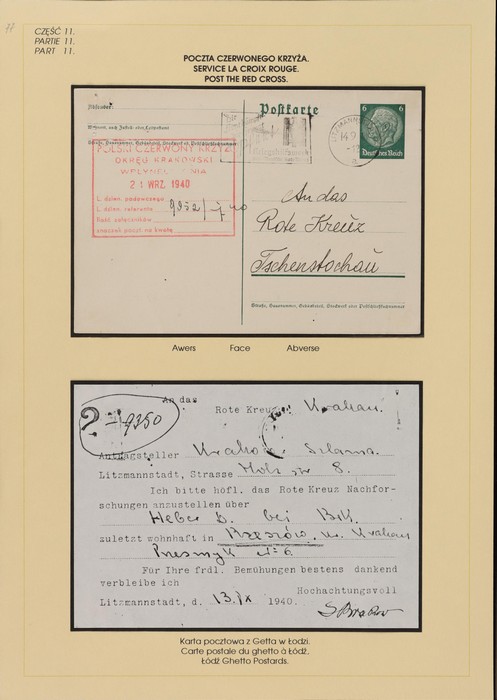 CZĘŚĆ 11.
PARTIE 11.
PART 11.
POCZTA CZERWONEGO KRZYŻA.
SERVICE LA CROIX ROUGE.
POST THE RED CROSS.
Absender:
Wohnort, auch Zustell- oder Leitpostamt
Straße, Hausnummer, Gebäudeteil, Stockwerk oder Postschließfachnummer
Postkarte
6 6
Deutsches Reich
LITZMANNSTADT
POLSKI CZERWONY KRZYŻ
OKRĘG KRAKOWSKI
WPŁYNĘŁO DNIA
21 WRZ. 1940
L. dzien. podawczego
L. dzien. referenta
Ilość załączników
znaczek poczt na kwotę
An das
Rote Kreuz
Tschenstochau
Straße, Hausnummer, Gebäudeteil, Stockwerk oder Postschließfachnummer
Awers Face Abverse
An das
Rote Kreuz Krakau.
? 9350
Antragsteller
Litzmannstadt, Strasse Holz str 8.
Ich bitte höfl. das Rote Kreuz Nachfor-
schungen anzustellen über
Heber D. bei
zuletzt wohnhaft in Rzeszów, Krakau
No 6
Für Ihre frdl. Bemühungen bestens dankend
verbleibe ich
Hochachtungsvoll
Litzmannstadt, d. 13. IX 1940.
Karta pocztowa z Getta w Łodzi.
Carte postale du ghetto à Łódź.
Łódź Ghetto Postards.